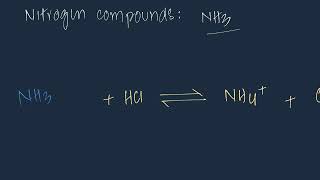 Nitrogen compounds: NH3
NH3 + HCl ⇌ NH4+ +